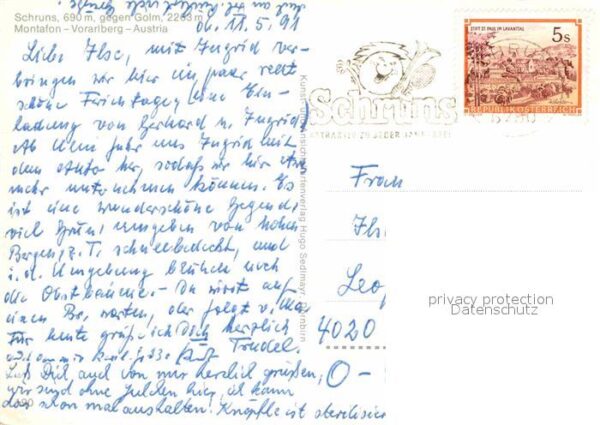 Schruns, 690 m, gegen Golm, 2263 m
Montafon – Vorarlberg – Austria
11.5.91
Liebe Ilse, mit Ingrid ver-
bringen wir hier ein paar recht
schöne Ferientage, eine Ein-
ladung von Gerhard u. Ingrid.
Ab Ulm fuhr uns Ingrid mit
dem Auto her, sodaß wir hier
mehr unternehmen können. Es
ist eine wunderschöne Gegend,
viel Grün, umgeben von hohen
Bergen, z.T. schneebedeckt, und
i.d. Umgebung blühen noch
die Obstbäume. – Du wirst auf
einen Br. warten, der folgt
Für heute grüß ich Dich herzlich
Trudel.
Laß Dich auch von mir herzlich grüßen,
wir sind ohne hier, ich kann
das schon mal aushalten. ist
Kunst Verlag Hugo Sedlmayr, Dornbirn
Schruns
STIFT ST. PAUL IM LAVANTTAL
5s
REPUBLIK ÖSTERREICH
Frau
Ilse
Leo
4020
privacy protection
Datenschutz